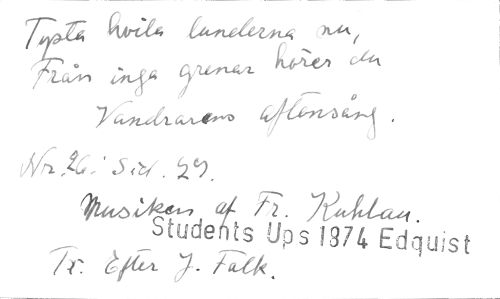 Tysta hvila lunderna nu,
Från inga grenar hörer du
Vandrarens aftonsång.
Nr. 26. Sid. 29.
Musiken af Fr. Kuhlau.
Students Ups 1874 Edquist
Tr. Efter J. Falk.